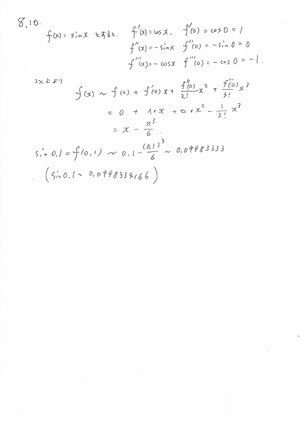 8.10.
f(x) = sin x とする. f'(x) = cos x, f'(0) = cos 0 = 1
f''(x) = -sin x f''(0) = -sin 0 = 0
f'''(x) = -cos x f'''(0) = -cos 0 = -1.
f(x) ~ f(0) + f'(0)x + f''(0)/2! x² + f'''(0)/3! x³
= 0 + 1·x + 0·x² - 1/3! x³
= x - x³/6.
sin 0.1 = f(0.1) ~ 0.1 - (0.1)³/6 ~ 0.09983333
(sin 0.1 ~ 0.0998334166)